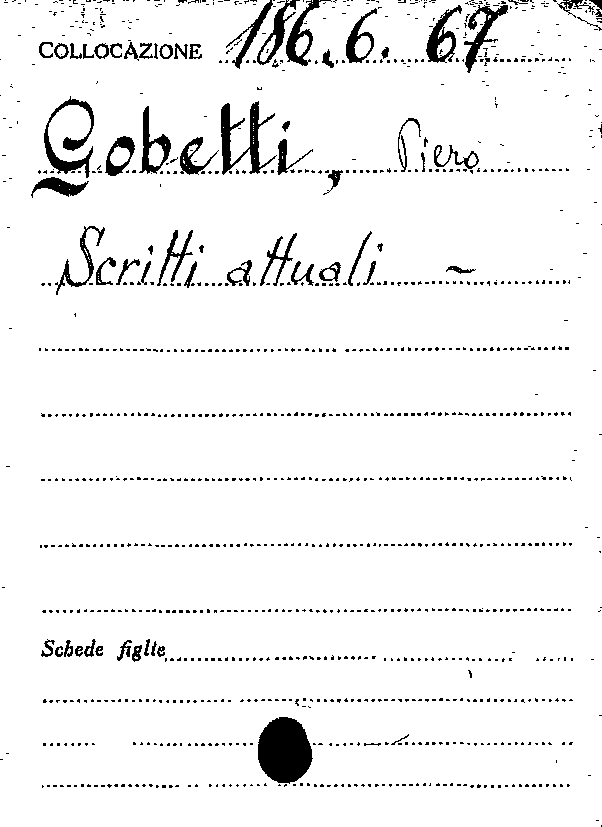 COLLOCAZIONE 186.6.67
Gobetti, Piero
Scritti attuali -
Schede figlie